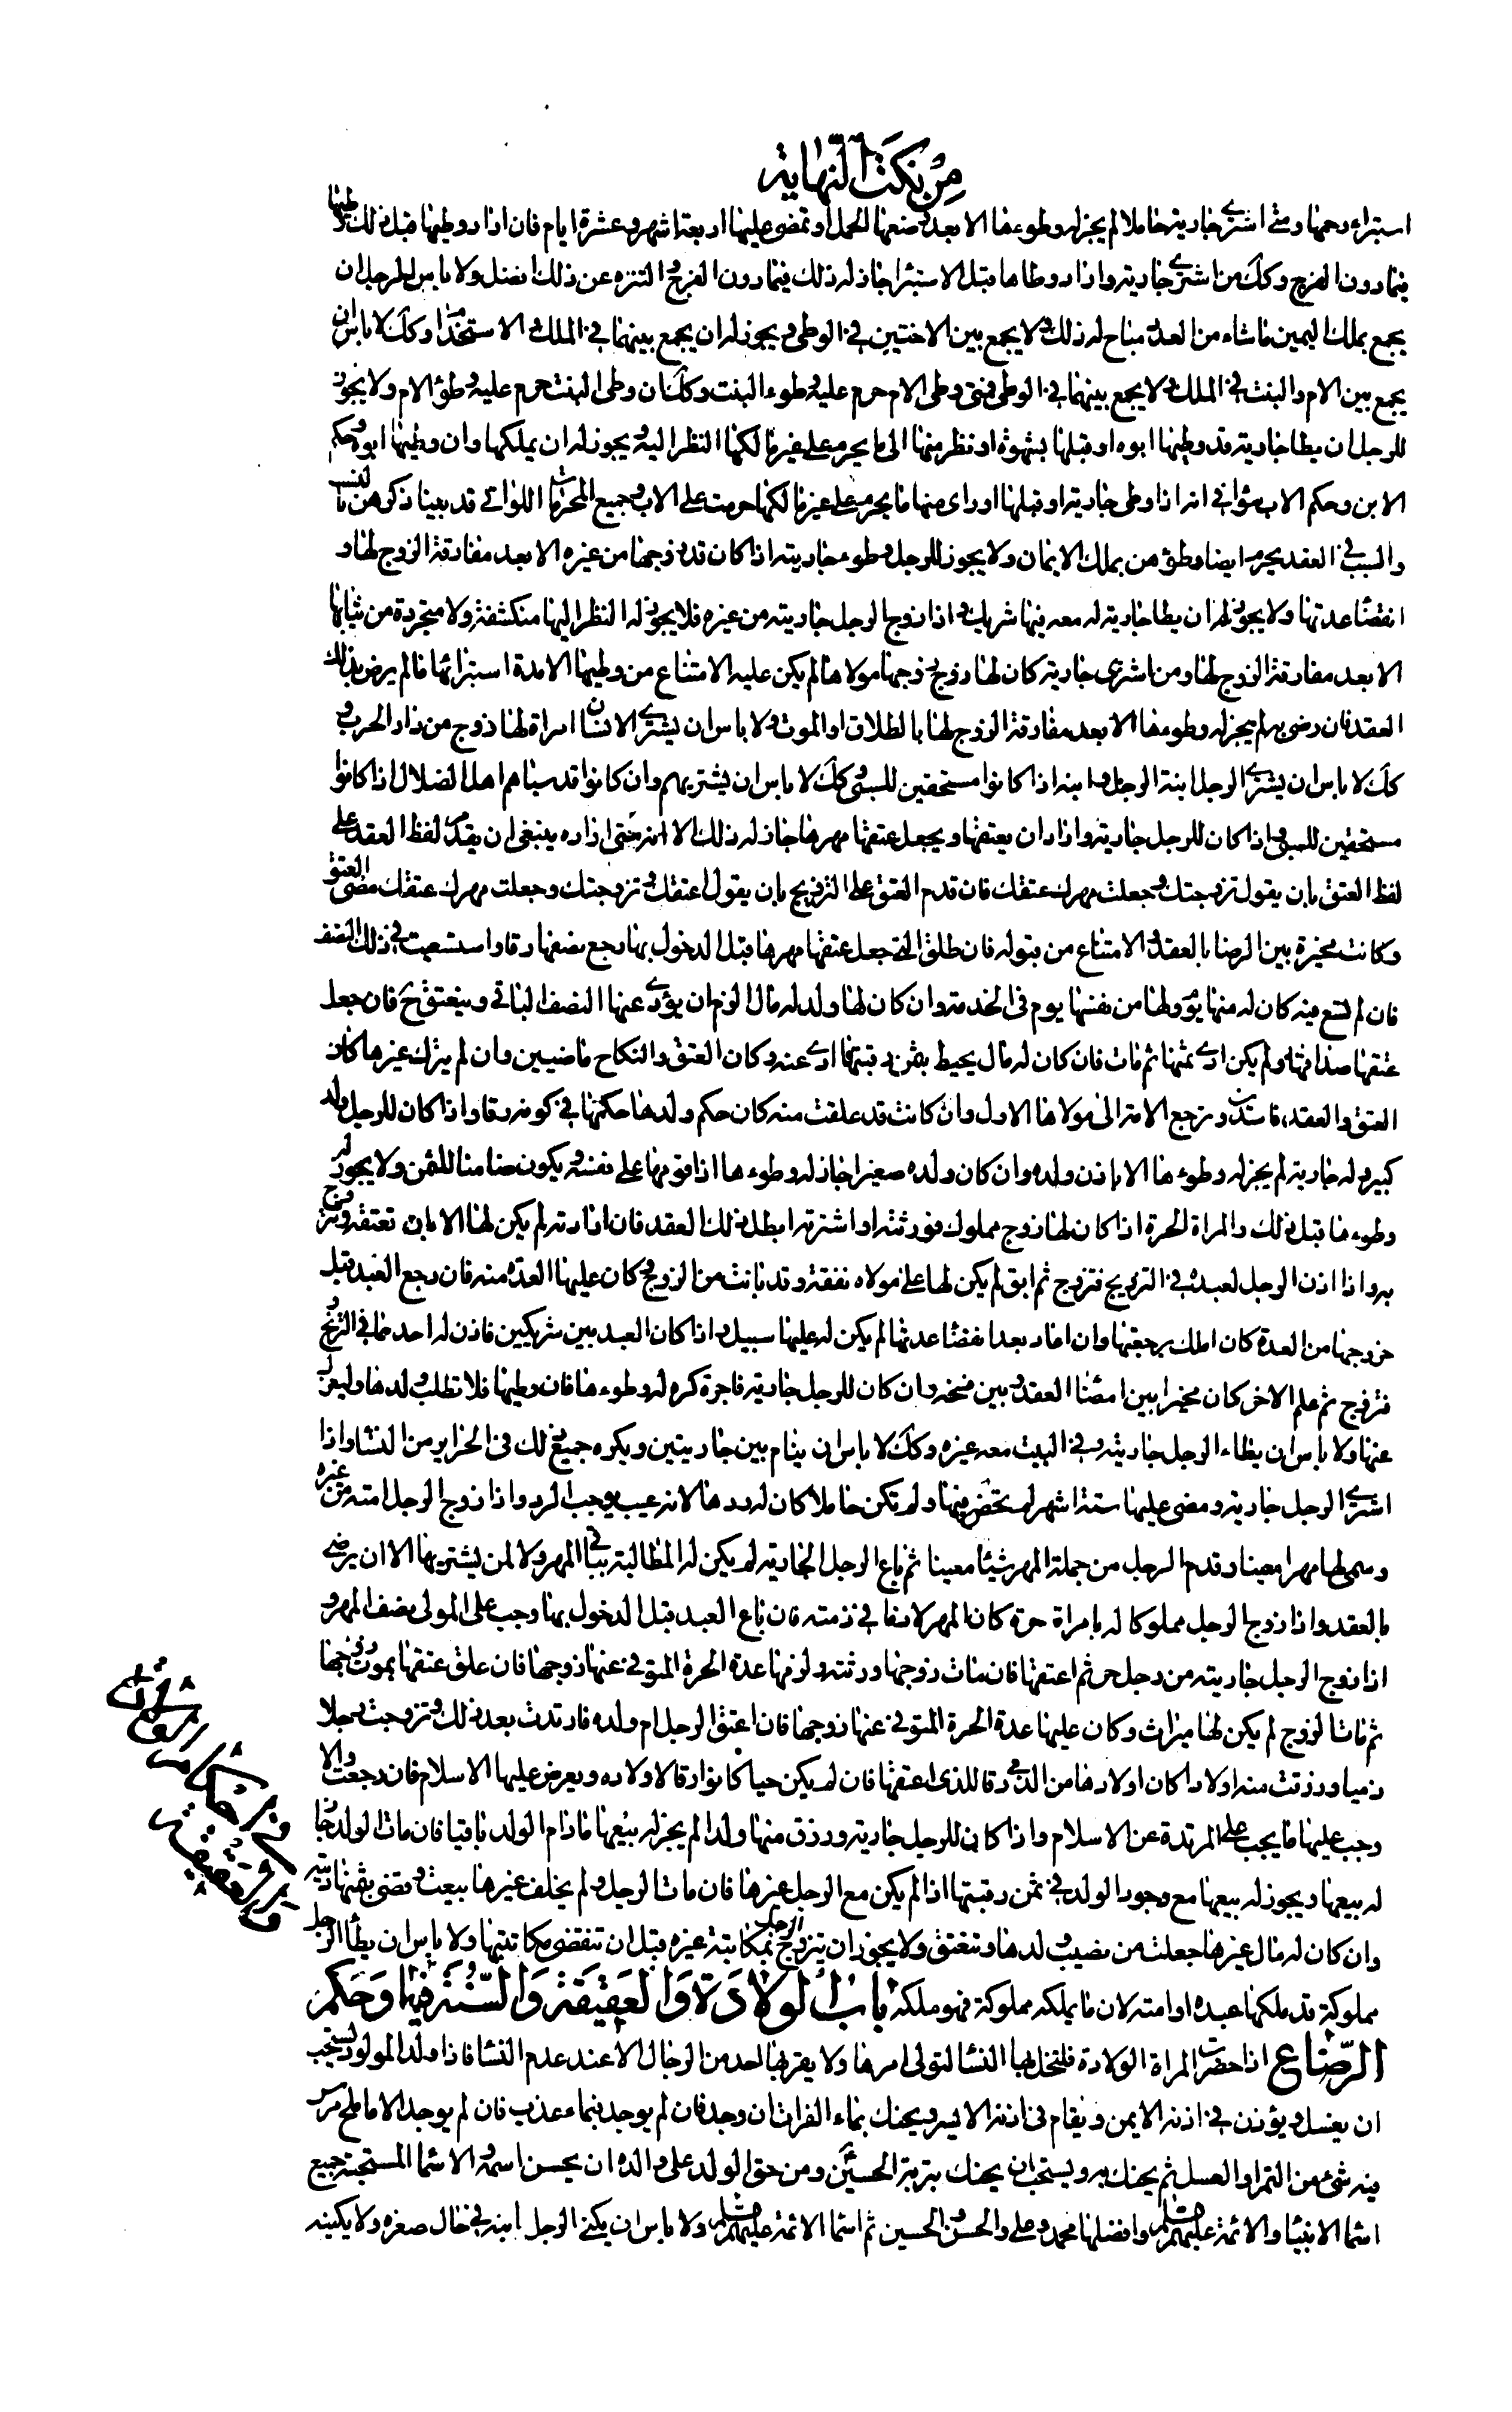 من نكت النهاية
استبراء رحمها ومتى اشترى جارية حاملا لم يجز له وطوءها الا بعد وضعها الحمل او تمضى عليها اربعة اشهر و عشرة ايام فان اراد وطيها قبل ذلك وطيها
فيما دون الفرج وكك من اشترى جارية واراد وطاها قبل الاستبرا جاز له ذلك فيما دون الفرج و التنزه عن ذلك افضل ولا باس للرجل ان
يجمع بملك اليمين ما شاء من العدد مباح له ذلك و لا يجمع بين الاختين في الوطى و يجوز له ان يجمع بينهما في الملك و الاستخدام وكك لا باس ان
يجمع بين الام والبنت في الملك و لا يجمع بينهما في الوطى فمتى وطى الام حرم عليه وطوء البنت وكك ان وطى البنت حرم عليه وطؤ الام ولا يجوز
للرجل ان يطا جارية قد وطيها ابوه او قبلها بشهوة او نظر منها الى ما يحرم على غير مالكها النظر اليه و يجوز له ان يملكها وان وطيها ابوه و حكم
الابن وحكم الاب سواء في انه اذا وطى جارية او قبلها او راى منها ما يحرم على غير مالكها حرمت على الاب و جميع المحرمات اللواتى قد بينا ذكرهن بالنسب
والسبب في العقد يحرم ايضا وطؤهن بملك الايمان ولا يجوز للرجل وطوء جاريته اذا كان قد زوجها من غيره الا بعد مفارقة الزوج لها و
انقضا عدتها ولا يجوز له ان يطا جارية له معه فيها شريك و اذا زوج الرجل جاريته من غيره فلا يجوز له النظر اليها منكشفة ولا متجردة من ثيابها
الا بعد مفارقة الزوج لها ومن اشترى جارية كان لها زوج زوجها مولاها لم يكن عليه الامتناع من وطيها الا مدة استبرائها ما لم يرض بذلك
العقد فان رضى به لم يجز له وطوءها الا بعد مفارقة الزوج لها بالطلاق او الموت و لا باس ان يشترى الانسان امراة لها زوج من دار الحرب و
كك لا باس ان يشترى الرجل ابنة الرجل و ابنه اذا كانوا مستحقين للسبى و كك لا باس ان يشتريهم وان كانوا قد سباهم اهل الضلال اذا كانوا
مستحقين للسبى و اذا كان للرجل جارية واراد ان يعتقها ويجعل عتقها مهرها جاز له ذلك الا انه متى اراده ينبغى ان يقدم لفظ العقد على
لفظ العتق بان يقول تزوجتك و جعلت مهرك عتقك فان قدم العتق على التزويج بان يقول اعتقتك و تزوجتك وجعلت مهرك عتقك مضى العتق
وكانت مخيرة بين الرضا بالعقد و الامتناع من قبوله فان طلق التى جعل عتقها مهرها قبل الدخول بها رجع نصفها رقا واستسعيت في ذلك النصف
فان لم تسع فيه كان له منها يوم ولها من نفسها يوم في الخدمة وان كان لها ولد له مال الزم ان يؤدى عنها النصف الباقى وينعتق ح فان جعل
عتقها صداقها ولم يكن ادى ثمنها ثم مات فان كان له مال يحيط بثمن رقبتها ادى عنه وكان العتق والنكاح ماضيين وان لم يترك غيرها كان
العتق والعقد فاسدين وترجع الامة الى مولاها الاول وان كانت قد علقت منه كان حكم ولدها حكمها في كونه رقا واذا كان للرجل ولد
كبير و له جارية لم يجز له وطوءها الا باذن ولده وان كان ولده صغيرا جاز له وطوءها اذا قومها على نفسه و يكون ضامنا للثمن ولا يجوز له
وطوءها قبل ذلك والمراة الحرة اذا كان لها زوج مملوك فورثته او اشترته ابطل ذلك العقد فان ارادته لم يكن لها الا بان تعتقه وتتزوج
به واذا اذن الرجل لعبده في التزويج فتزوج ثم ابق لم يكن لها على مولاه نفقة و قد بانت من الزوج و كان عليها العدة منه فان رجع العبد قبل
خروجها من العدة كان املك برجعتها وان عاد بعد انقضا عدتها لم يكن له عليها سبيل و اذا كان العبد بين شريكين فاذن له احدهما في التزويج
فتزوج ثم علم الاخر كان مخيرا بين امضا العقد و بين فسخه وان كان للرجل جارية فاجرة كره له وطوءها فان وطيها فلا تطلب ولدها وليعزل
عنها ولا باس ان يطاء الرجل جاريته و في البيت معه غيره وكك لا باس ان ينام بين جاريتين ويكره جميع ذلك في الحراير من النسا واذا
اشترى الرجل جارية ومضى عليها ستة اشهر لم تحض فيها ولم تكن حاملا كان له ردها لانه عيب يوجب الرد واذا زوج الرجل امته من غيره
وسمى لها مهرا معينا وقدم الرجل من جملة المهر شيئا معينا ثم باع الرجل الجارية لم يكن له المطالبة بباقى المهر ولا لمن يشتريها الا ان يرضى
بالعقد واذا زوج الرجل مملوكا له بامراة حرة كان المهر لازما في ذمته فان باع العبد قبل الدخول بها وجب على المولى نصف المهر و
اذا زوج الرجل جاريته من رجل حر ثم اعتقها فان مات زوجها ورثته ولزمها عدة الحرة المتوفى عنها زوجها فان علق عتقها بموت زوجها
ثم مات الزوج لم يكن لها ميراث وكان عليها عدة الحرة المتوفى عنها زوجها فان اعتق الرجل ام ولده فارتدت بعد ذلك و تزوجت رجلا
ذميا ورزقت منه اولادا كان اولادها من الذمى رقا للذى اعتقها فان لم يكن حيا كانوا رقا لاولاده ويعرض عليها الاسلام فان رجعت والا
وجب عليها ما يجب على المرتدة عن الاسلام واذا كان للرجل جارية ورزق منها ولدا لم يجز له بيعها مادام الولد باقيا فان مات الولد جاز
له بيعها ويجوز له بيعها مع وجود الولد في ثمن رقبتها اذا لم يكن مع الرجل غيرها فان مات الرجل و لم يخلف غيرها بيعت و قضى بثمنها دينه
وان كان له مال غيرها جعلت من نصيب ولدها وتنعتق ولا يجوز ان يتزوج الرجل بمكاتبة غيره قبل ان تنقضى مكاتبتها ولا باس ان يطأ الرجل
مملوكة قد ملكها عبده او امته لان ما يملكه مملوكه فهو ملكه باب الولادة والعقيقة والسنة فيها وحكم
الرضاع اذا حضرت المراة الولادة فلتخل بها النسا لتولى امرها ولا يقربها احد من الرجال الا عند عدم النسا فاذا ولد المولود يستحب
ان يغسل و يؤذن في اذنه الايمن ويقام في اذنه الايسر و يحنك بماء الفرات ان وجد فان لم يوجد فبماء عذب فان لم يوجد الا ماء ملح مرس
فيه شئ من التمر او العسل ثم يحنك به ويستحب ان يحنك بتربة الحسين ع ومن حق الولد على والده ان يحسن اسمه و الاسما المستحبة جميع
اسما الانبيا والائمة عليهم السلم وافضلها محمد و على والحسن و الحسين ثم اسما الائمة عليهم السلم ولا باس ان يكنى الرجل ابنه في حال صغره ولا يكنيه